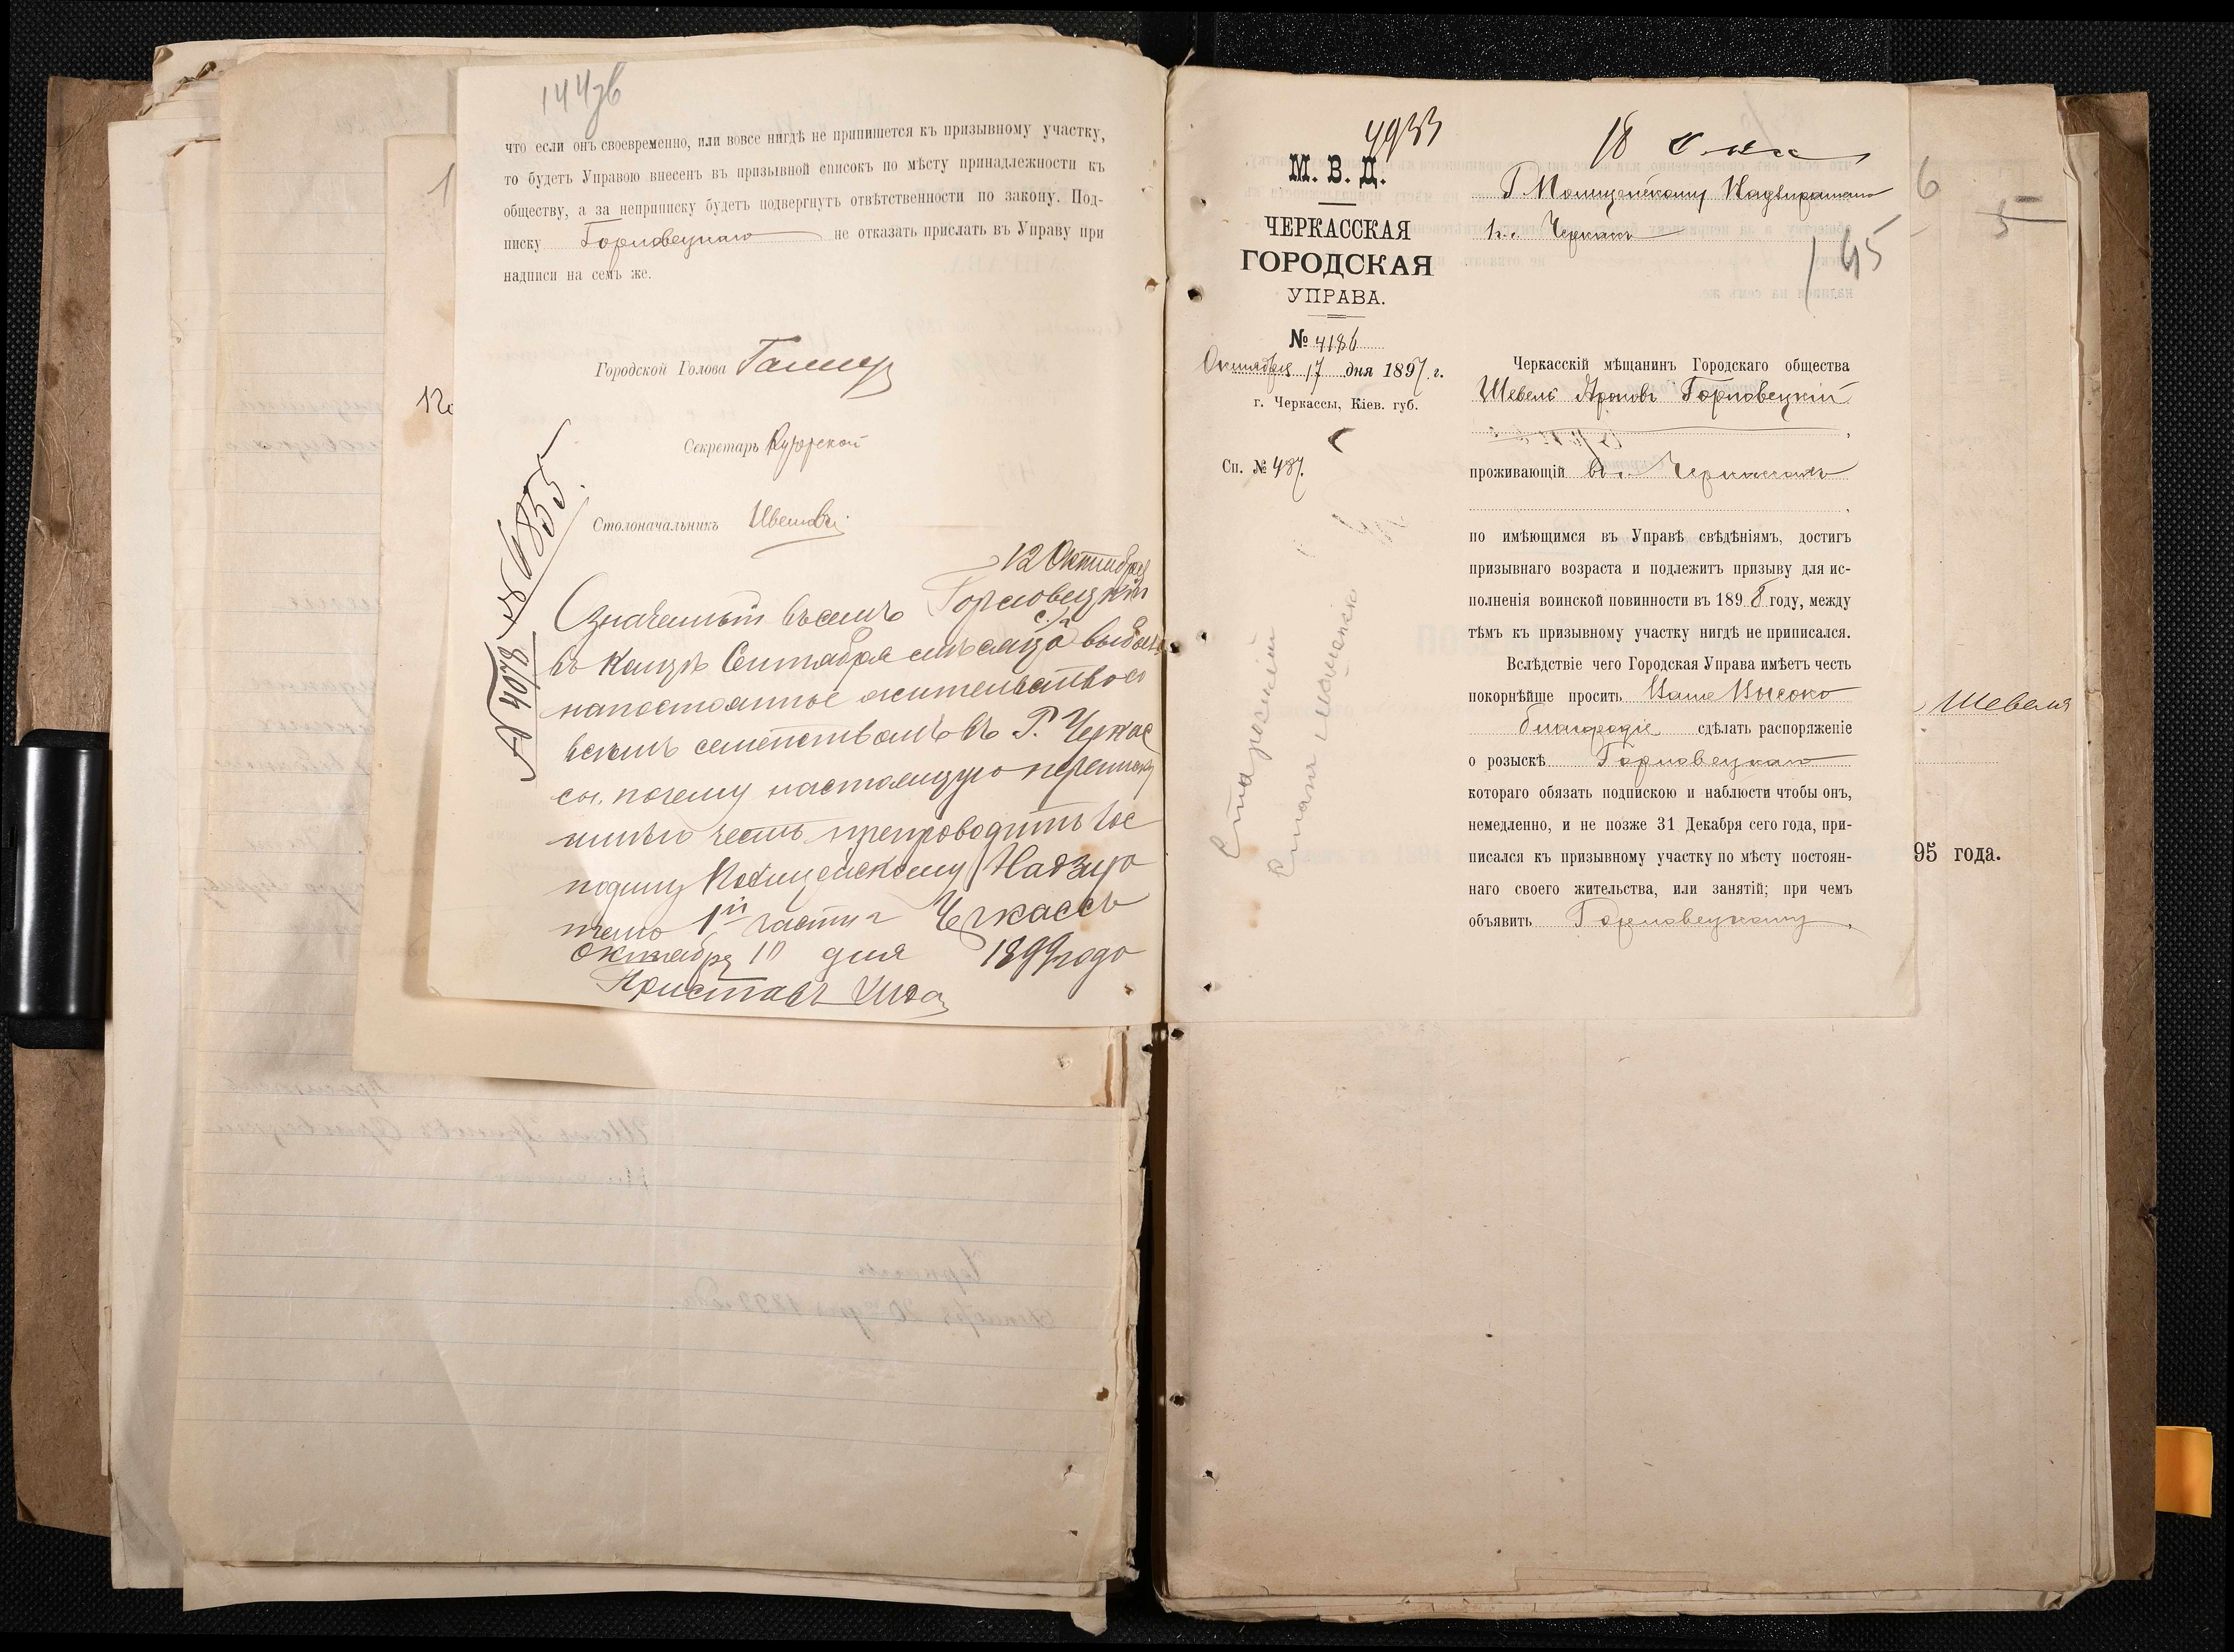 144зв
что если онъ своевременно, или вовсе нигдѣ не припишется къ призывному участку,
то будетъ Управою внесенъ въ призывной списокъ по мѣсту принадлежности къ
обществу, а за неприписку будетъ подвергнутъ отвѣтственности по закону. Под-
писку Горловецкаго не отказать прислать въ Управу при
надписи на семъ же.
Городской Голова
Секретарь
Столоначальникъ
№ 4855
12 Октября
Означенный въ семъ Горловецкій
въ Концѣ Сентября мѣсяца с. г. выбылъ
на постоянное жительство со
всѣмъ семействомъ въ Г. Черкас
сы, почему настоящую переписку
имѣю честь препроводить Гос
подину Полицейскому Надзира
телю 1й части г Черкассъ
Октября 10 дня 1899 года
Приставъ
4933
М. В. Д.
ЧЕРКАССКАЯ
ГОРОДСКАЯ
УПРАВА.
№ 4186
Октября 17 дня 1897 г.
г. Черкассы, Кіев. губ.
Сп. № 487.
18
Г. Полицейскому Надзирателю
Черкассъ
145
Черкасскій мѣщанинъ Городскаго общества
Шевель Ароновъ Горловецкій
проживающій въ г. Черкассахъ
по имѣющимся въ Управѣ свѣдѣніямъ, достигъ
призывнаго возраста и подлежитъ призыву для ис-
полненія воинской повинности въ 1898 году, между
тѣмъ къ призывному участку нигдѣ не приписался.
Вслѣдствіе чего Городская Управа имѣетъ честь
покорнѣйше просить Ваше Высоко
благородіе сдѣлать распоряженіе
о розыскѣ Горловецкаго
котораго обязать подпискою и наблюсти чтобы онъ,
немедленно, и не позже 31 Декабря сего года, при-
писался къ призывному участку по мѣсту постоян-
наго своего жительства, или занятій; при чемъ
объявить Горловецкому
6
5
Шевеля
95 года.